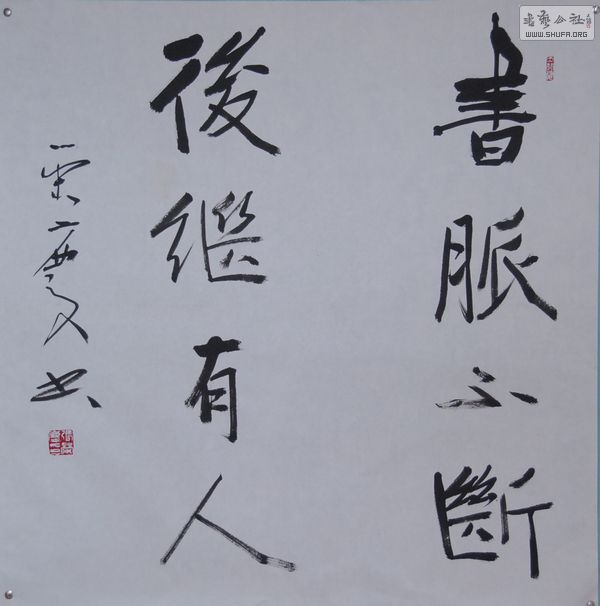 書脈不斷
後繼有人
書法公社
WWW.SHUFA.ORG